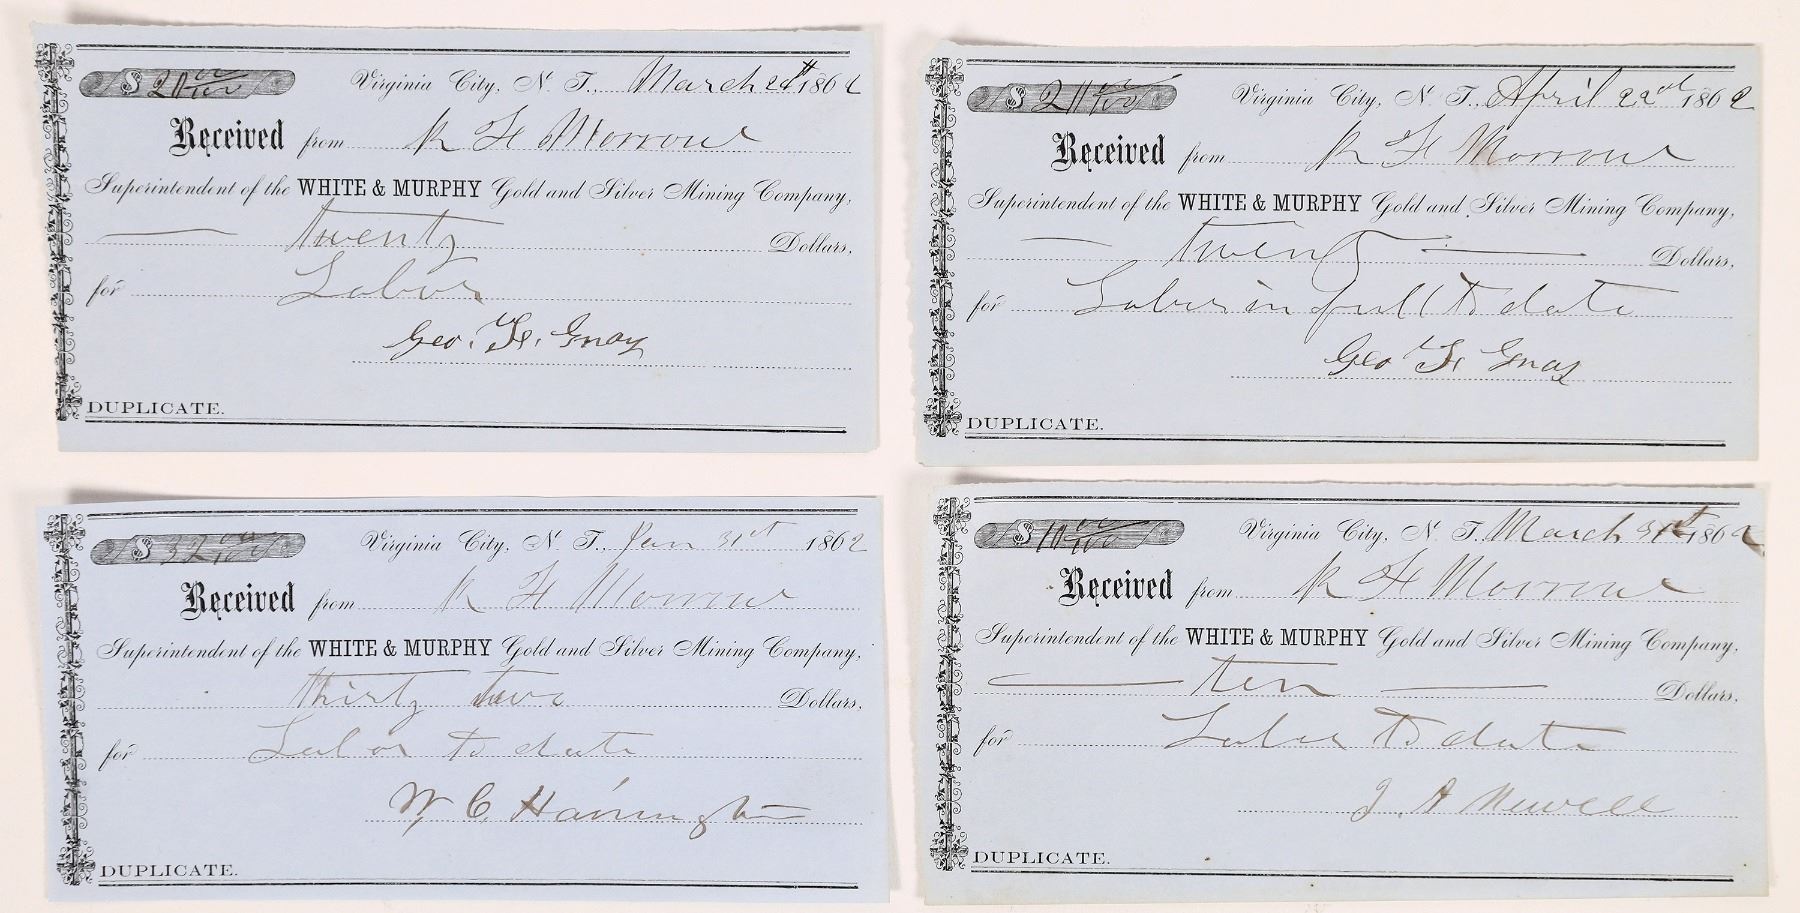 $ 20 00/100 Virginia City, N. T., March 20th 1862
Received from R F Morrow
Superintendent of the WHITE & MURPHY Gold and Silver Mining Company,
twenty Dollars,
for Labor
Geo. F. Gray
DUPLICATE.
$ 20 00/100 Virginia City, N. T., April 22nd 1862
Received from R F Morrow
Superintendent of the WHITE & MURPHY Gold and Silver Mining Company,
twenty Dollars,
for Labor in full to date
Geo F Gray
DUPLICATE.
$ 32 00/100 Virginia City, N. T., Jan 31st 1862
Received from R F Morrow
Superintendent of the WHITE & MURPHY Gold and Silver Mining Company,
thirty two Dollars,
for Labor to date
W, C Harrington
DUPLICATE.
$ 10 00/100 Virginia City, N. T., March 31st 1862
Received from R F Morrow
Superintendent of the WHITE & MURPHY Gold and Silver Mining Company,
ten Dollars,
for Labor to date
J. A Newell
DUPLICATE.